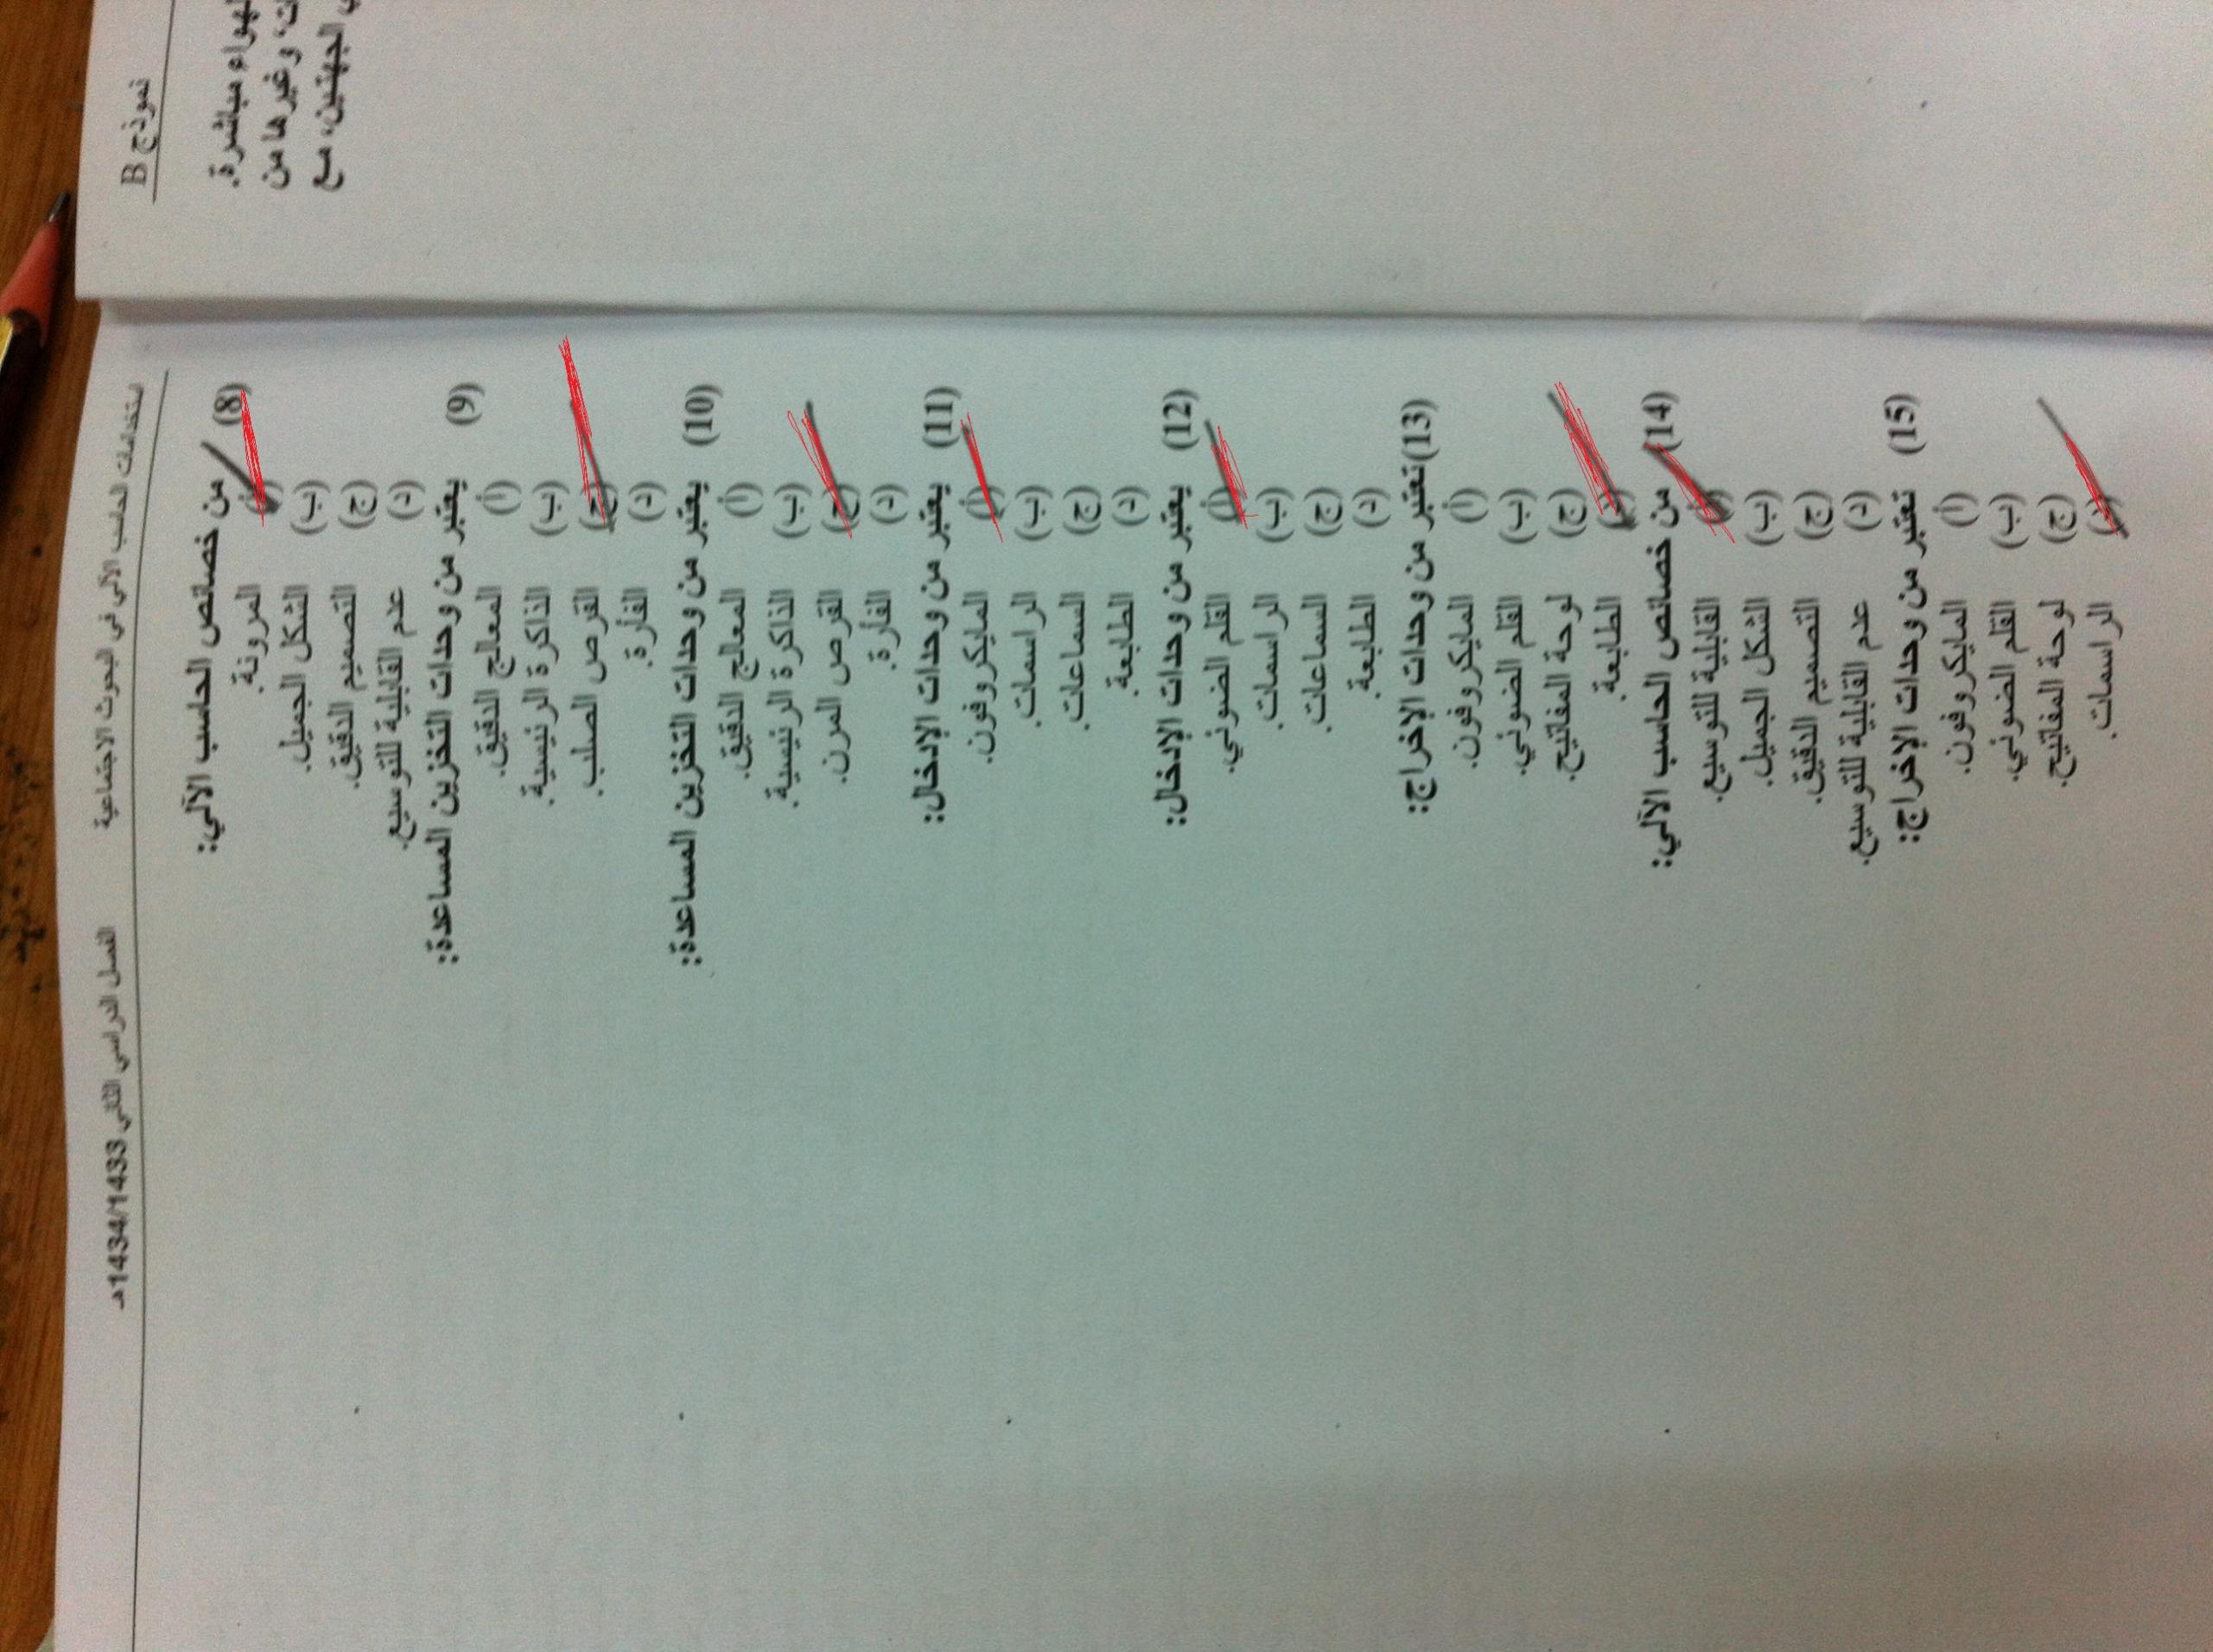 نموذج B
هواء مباشرة.
وغيرها من
الجهتين، مع
استخدامات الحاسب الآلي في البحوث الاجتماعية
الفصل الدراسي الثاني 1434/1433هـ
(8) من خصائص الحاسب الآلي:
(أ) المرونة.
(ب) الشكل الجميل.
(ج) التصميم الدقيق.
(د) عدم القابلية للتوسيع.
(9) يعتبر من وحدات التخزين المساعدة:
(أ) المعالج الدقيق.
(ب) الذاكرة الرئيسية.
(ج) القرص الصلب.
(د) الفأرة.
(10) يعتبر من وحدات التخزين المساعدة:
(أ) المعالج الدقيق.
(ب) الذاكرة الرئيسية.
(ج) القرص المرن.
(د) الفأرة.
(11) يعتبر من وحدات الإدخال:
(أ) المايكروفون.
(ب) الراسمات.
(ج) السماعات.
(د) الطابعة.
(12) يعتبر من وحدات الإدخال:
(أ) القلم الضوئي.
(ب) الراسمات.
(ج) السماعات.
(د) الطابعة.
(13) تعتبر من وحدات الإخراج:
(أ) المايكروفون.
(ب) القلم الضوئي.
(ج) لوحة المفاتيح.
(د) الطابعة.
(14) من خصائص الحاسب الآلي:
(أ) القابلية للتوسيع.
(ب) الشكل الجميل.
(ج) التصميم الدقيق.
(د) عدم القابلية للتوسيع.
(15) تعتبر من وحدات الإخراج:
(أ) المايكروفون.
(ب) القلم الضوئي.
(ج) لوحة المفاتيح.
(د) الراسمات.